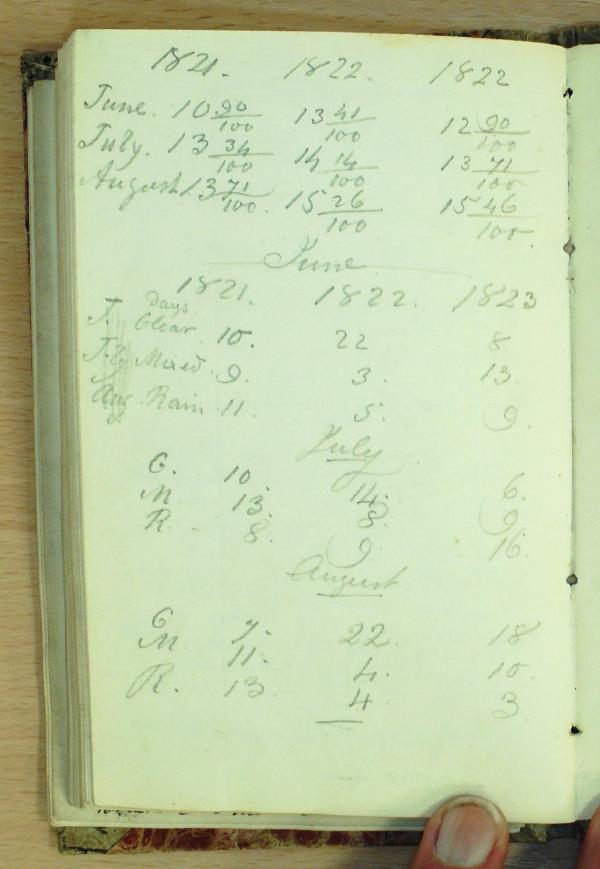 1821. 1822. 1822
June. 10 90/100 13 41/100 12 90/100
July. 13 34/100 14 14/100 13 71/100
August 13 71/100. 15 26/100 15 46/100.
June
1821. 1822. 1823
Days
Clear 10. 22 8.
Mixed. 9. 3. 13.
Rain 11. 5. 9.
July
C. 10. 14. 6.
M 13. 8. 9.
R. 8. 9. 16.
August
C 7. 22. 18
M 11. 4. 10.
R. 13 4 3